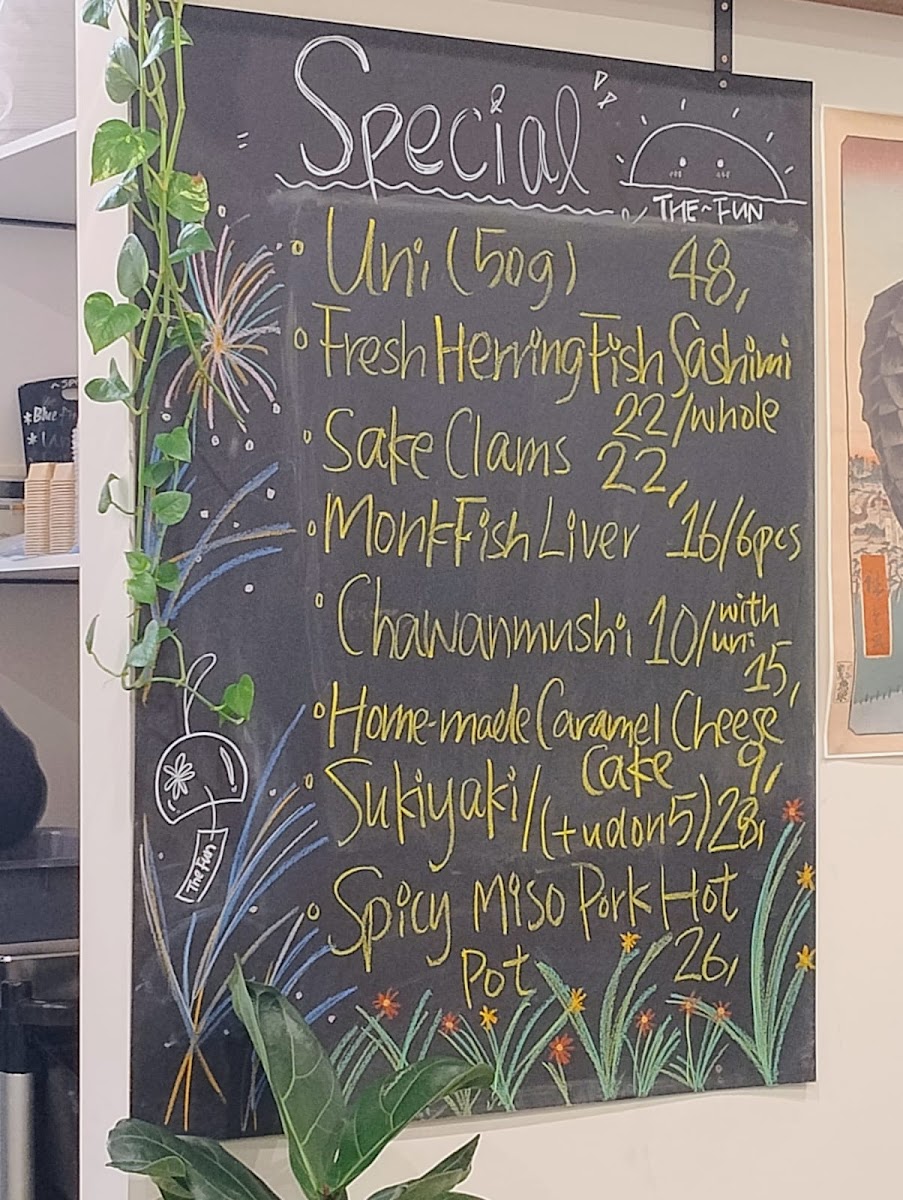 Special
THE~FUN
Uni (50g) 48,
Fresh Herring Fish Sashimi
22/whole
Sake Clams 22,
MonkFish Liver 16/6pcs
Chawanmushi 10/with
uni
15,
Home-made Caramel Cheese
Cake 9,
Sukiyaki/(+udon5)28,
Spicy Miso Pork Hot
Pot 26,
The Fun